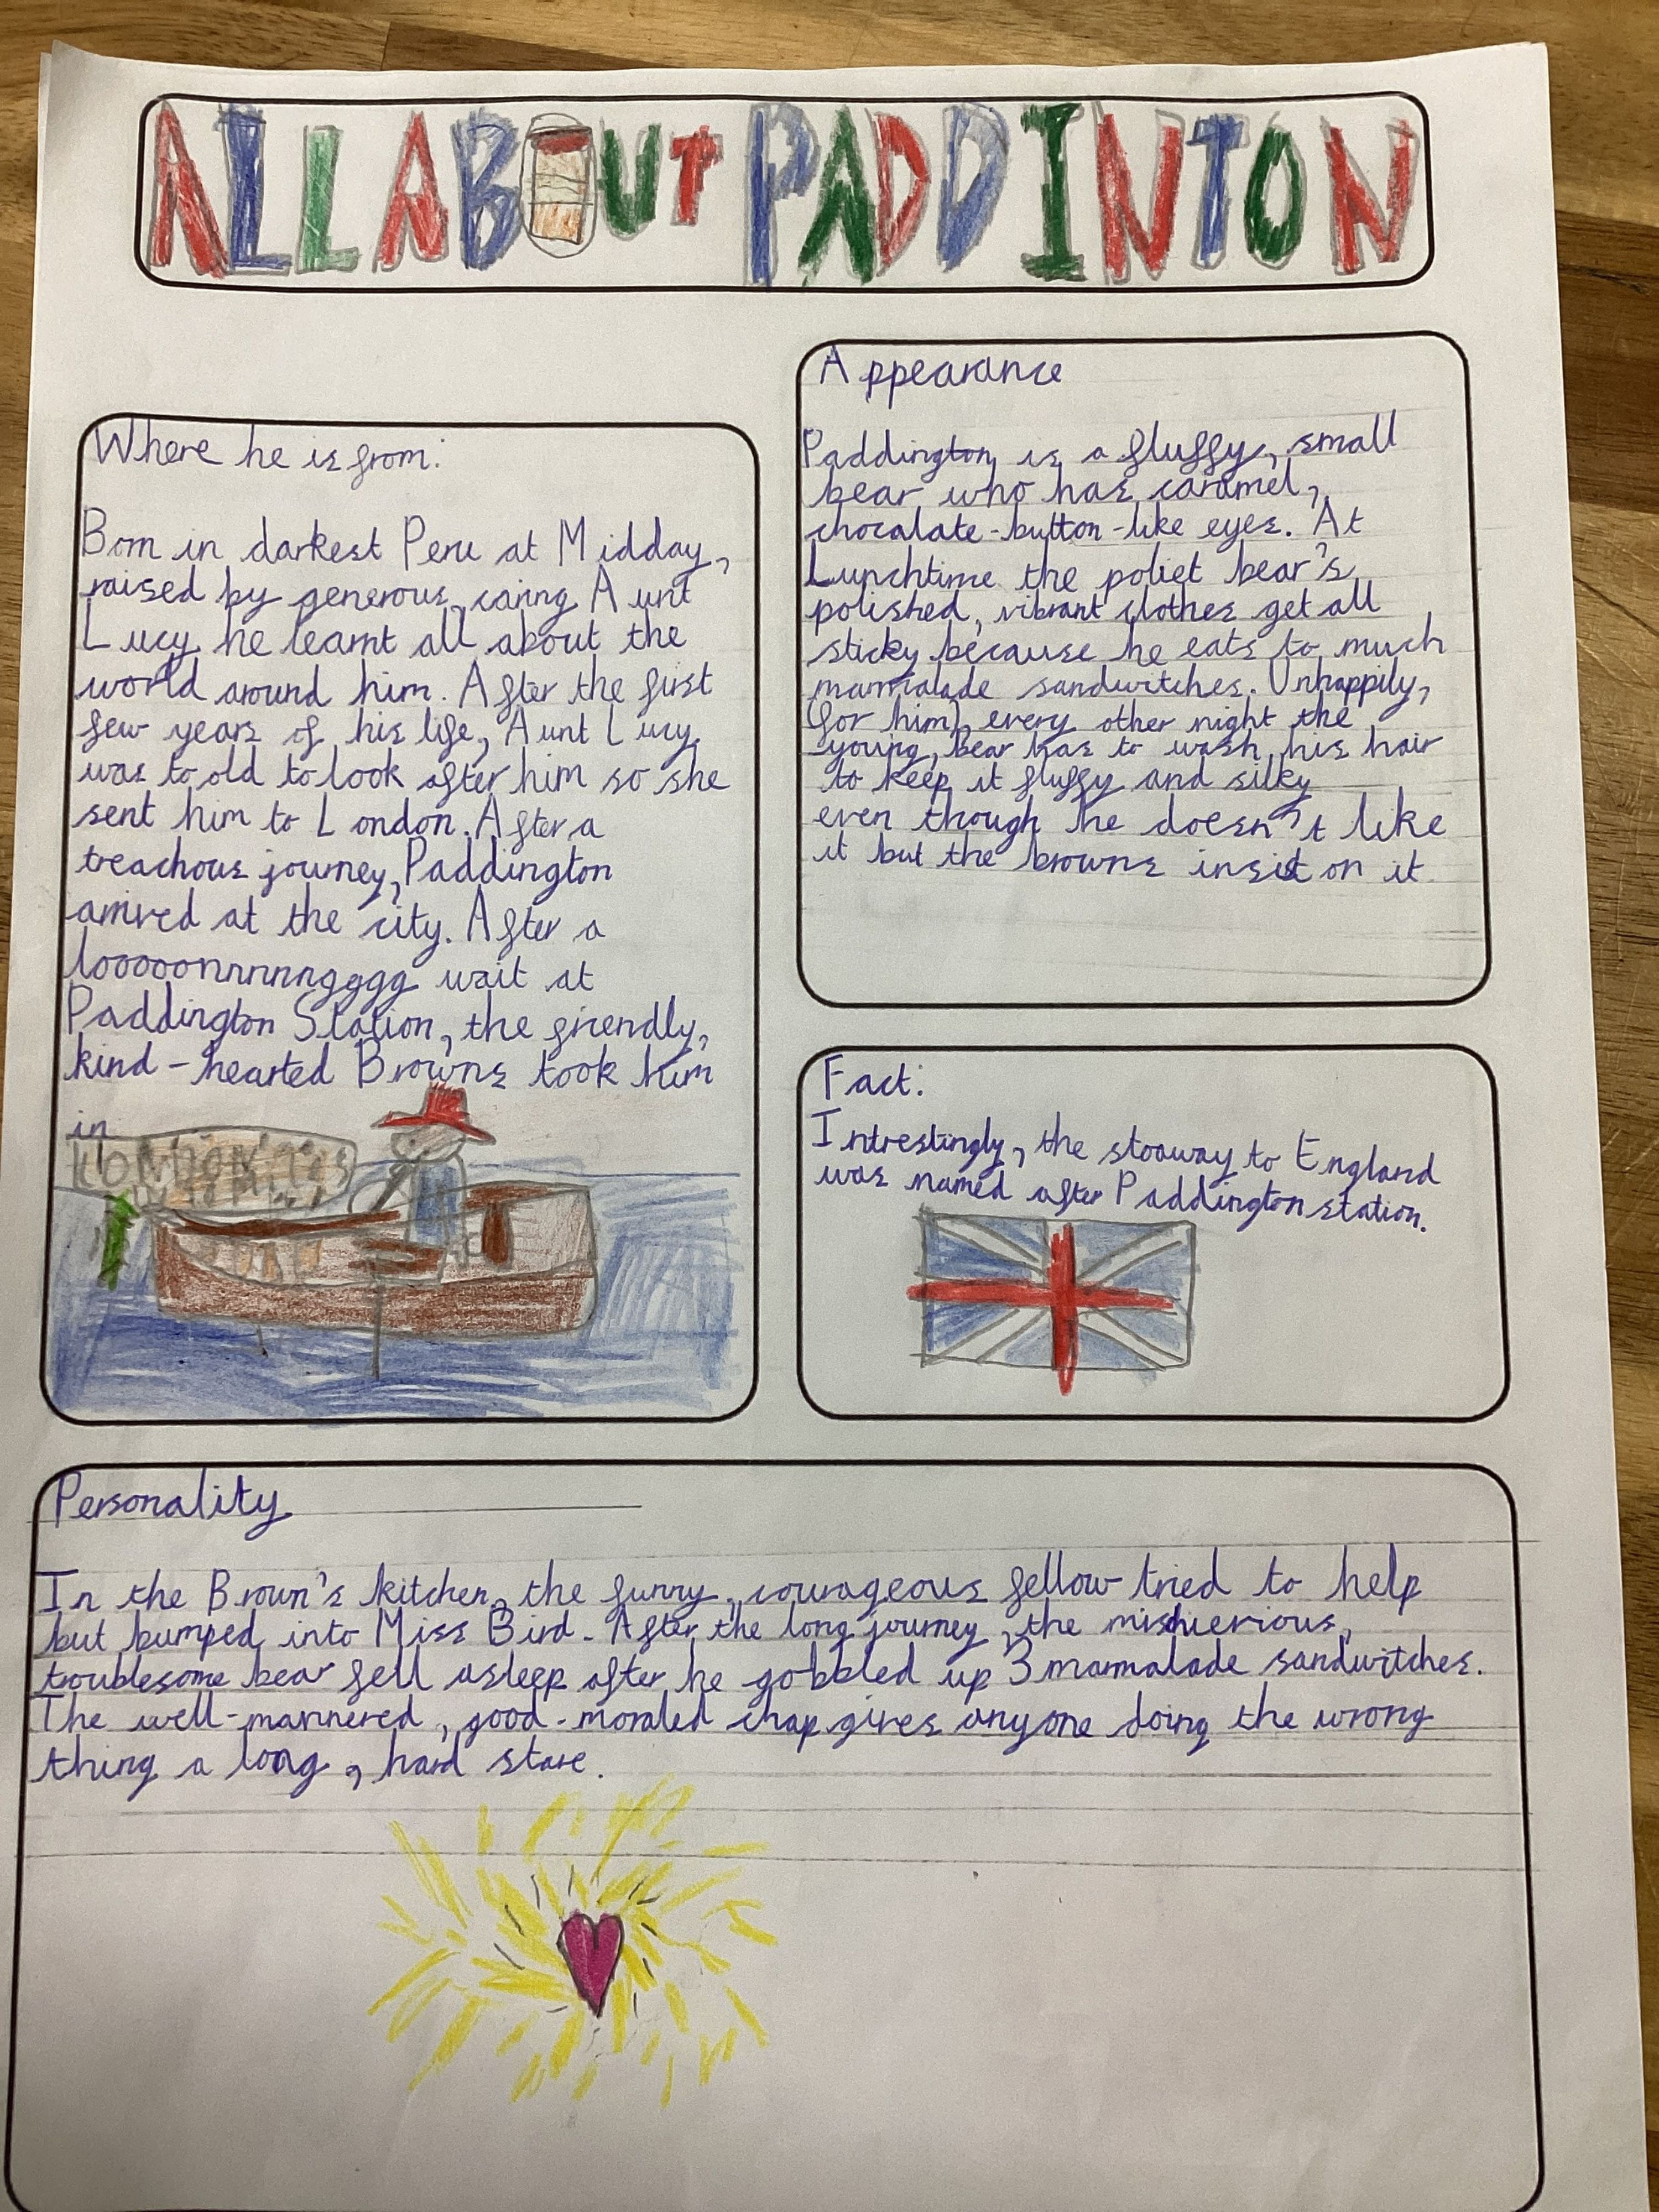 ALL ABOUT PADDINTON
Where he is from:
Born in darkest Peru at Midday,
raised by generous, caring Aunt
Lucy he learnt all about the
world around him. After the first
few years of his life, Aunt Lucy
was to old to look after him so she
sent him to London. After a
treachous journey, Paddington
arrived at the city. After a
looooonnnnnngggg wait at
Paddington Station, the friendly,
kind-hearted Browns took him
in
Appearance
Paddington is a fluffy, small
bear who has caramel,
chocalate-button-like eyes. At
Lunchtime the poliet bear's
polished, vibrant clothes get all
sticky because he eats to much
marmalade sandwitches. Unhappily,
(for him) every other night the
young, bear has to wash his hair
to keep it fluffy and silky
even though he doesn't like
it but the browns insist on it
Fact:
Intrestingly, the stoaway to England
was named after Paddington station.
Personality
In the Brown's kitchen, the funny, courageous fellow tried to help
but bumped into Miss Bird. After the long journey, the mischievious,
troublesome bear fell asleep after he gobbled up 3 marmalade sandwitches.
The well-mannered, good-moraled chap gives anyone doing the wrong
thing a long, hard stare.